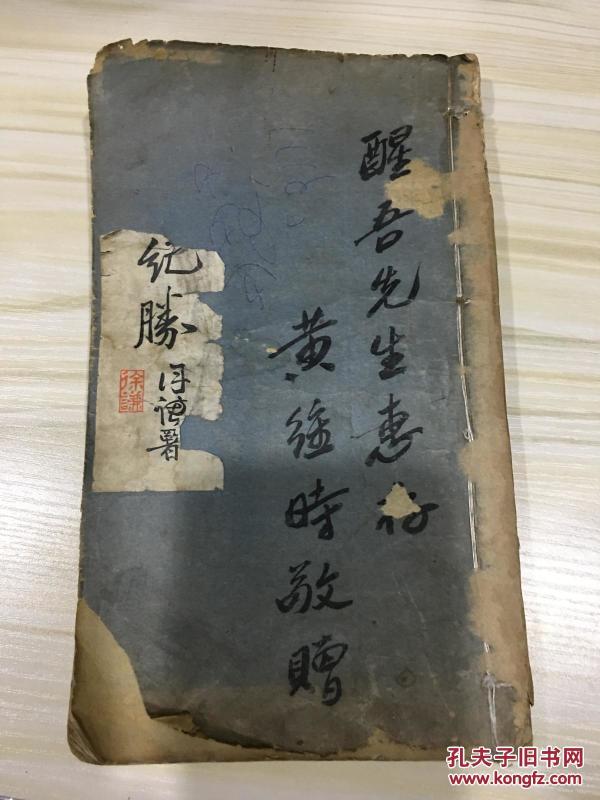 醒吾先生惠存
黄經時敬贈
纪勝
署
徐謙
孔夫子旧书网
www.kongfz.com